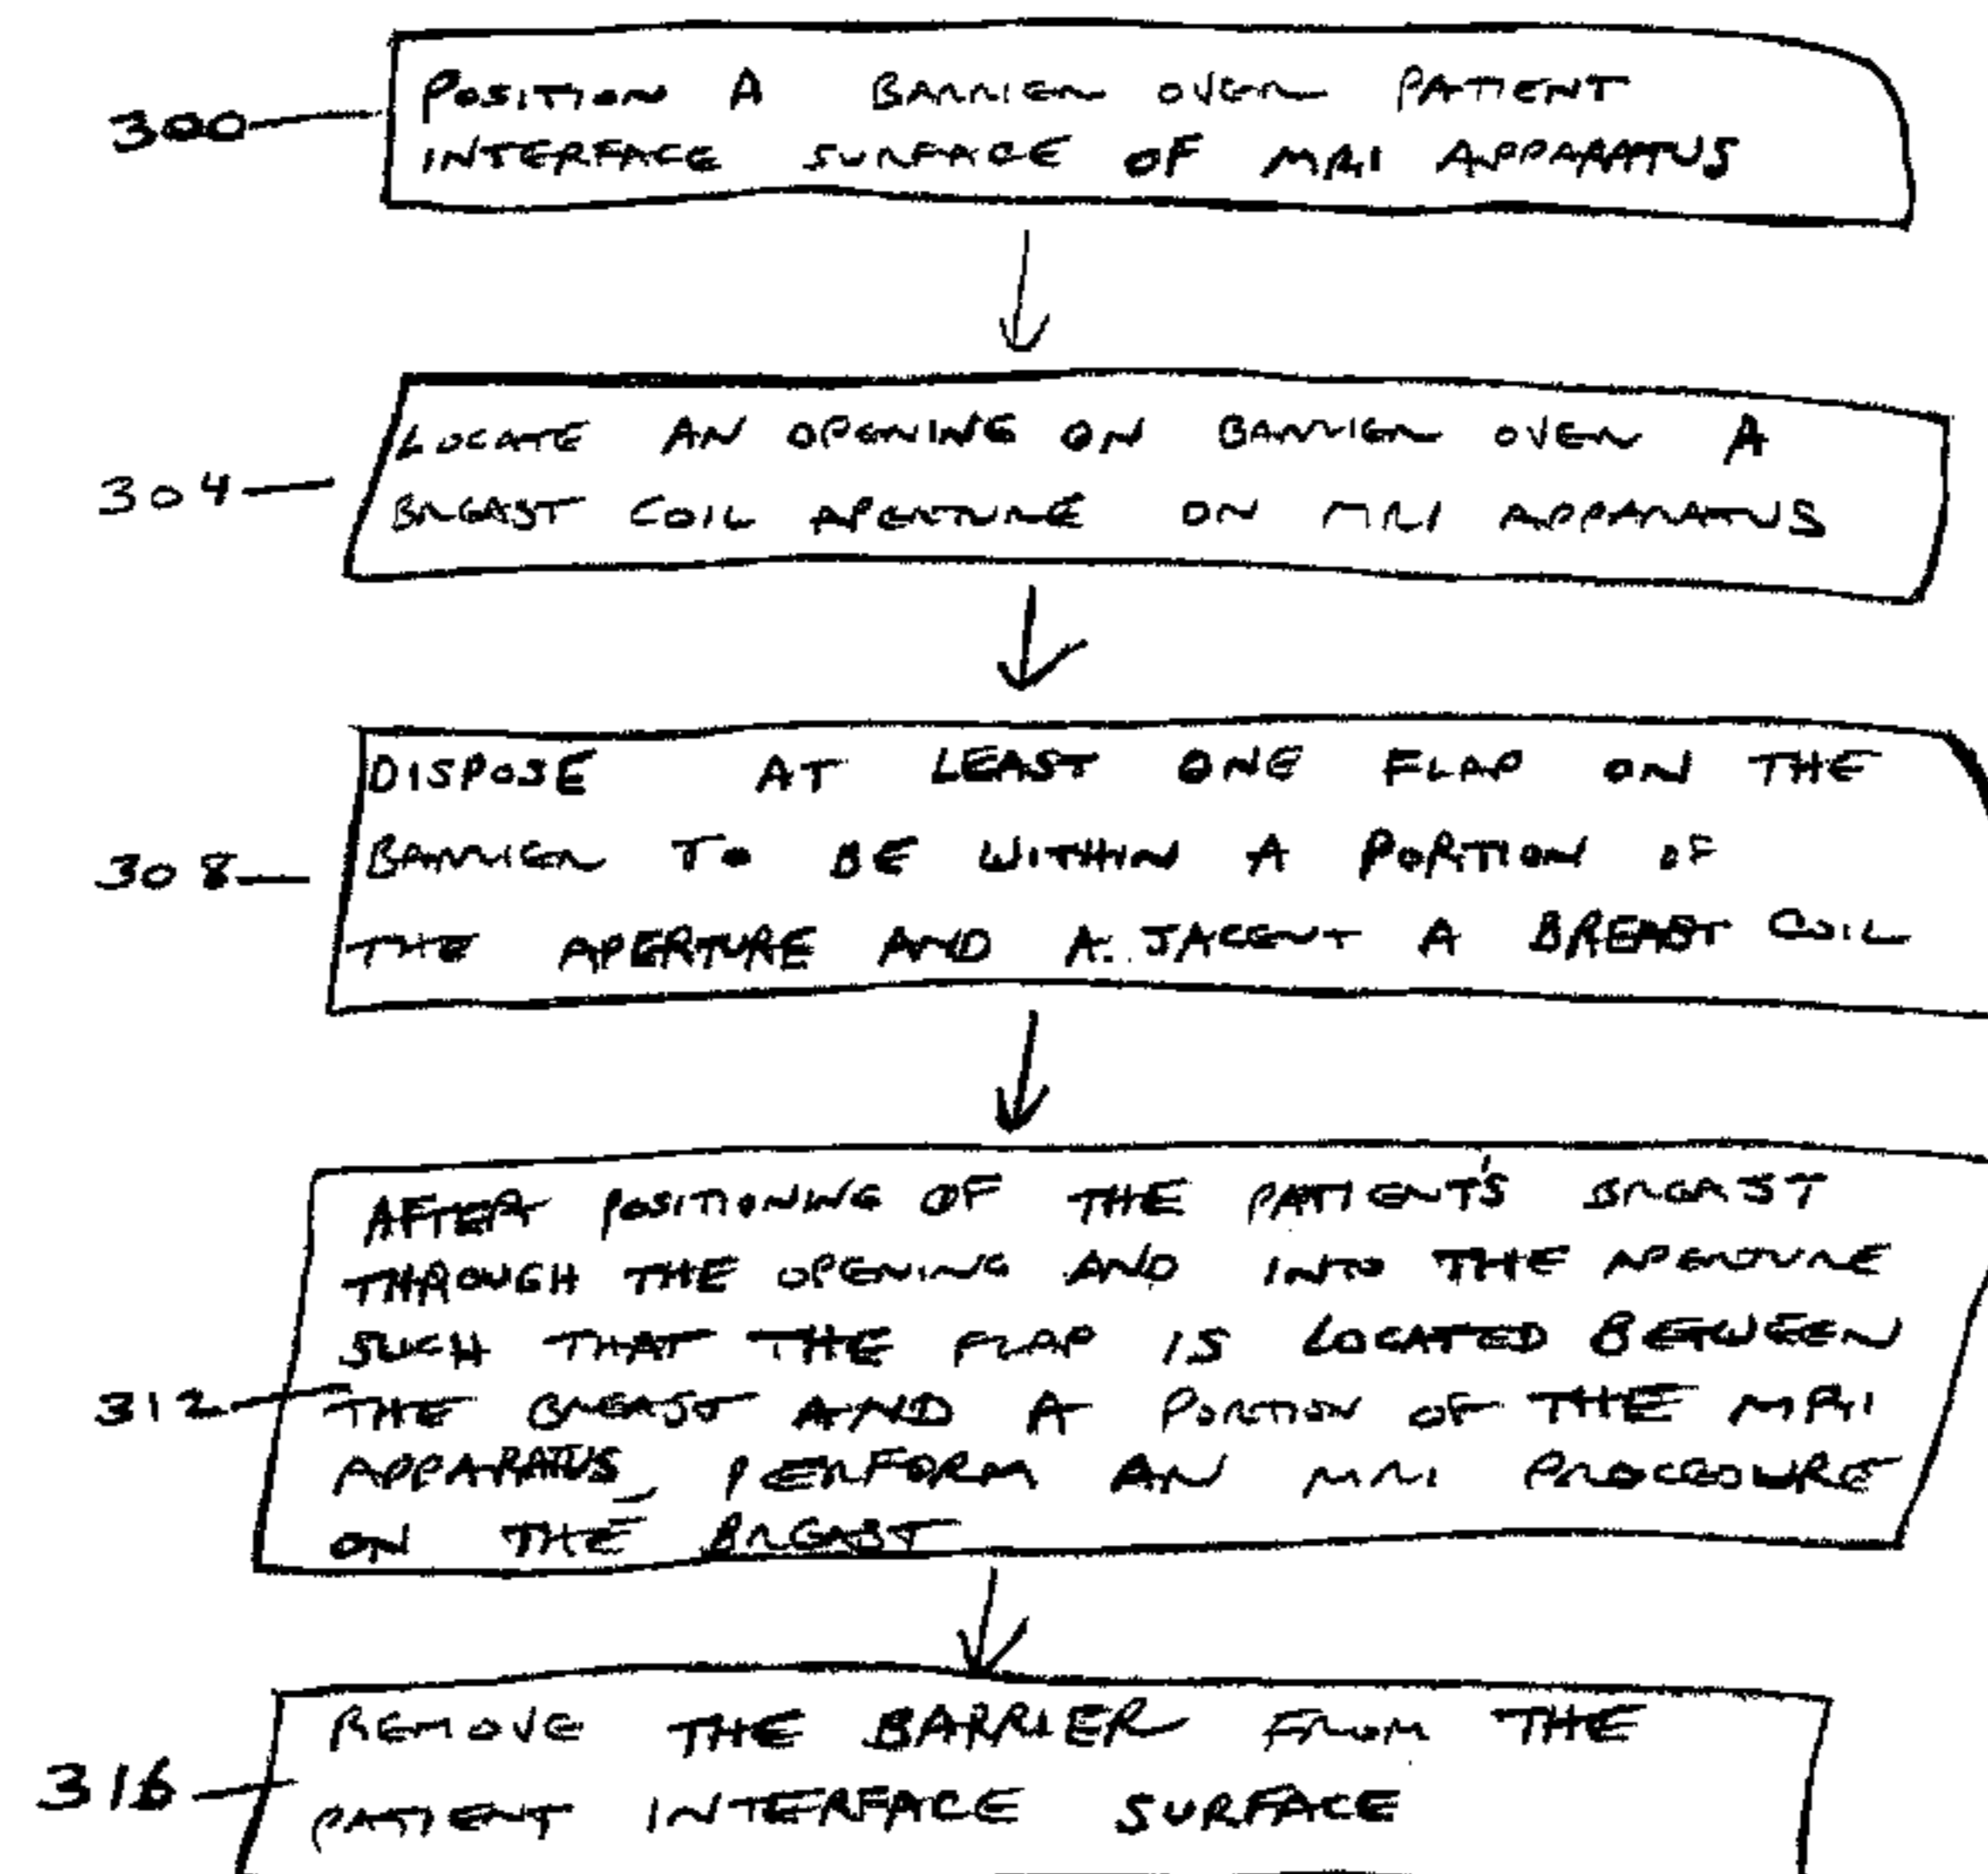 300
POSITION A BARRIER OVER PATIENT
INTERFACE SURFACE OF MRI APPARATUS
304
LOCATE AN OPENING ON BARRIER OVER A
BREAST COIL APERTURE ON MRI APPARATUS
308
DISPOSE AT LEAST ONE FLAP ON THE
BARRIER TO BE WITHIN A PORTION OF
THE APERTURE AND A JACENT A BREAST COIL
312
AFTER POSITIONING OF THE PATIENT'S BREAST
THROUGH THE OPENING AND INTO THE APERTURE
SUCH THAT THE FLAP IS LOCATED BETWEEN
THE BREAST AND A PORTION OF THE MRI
APPARATUS, PERFORM AN MRI PROCEDURE
ON THE BREAST
316
REMOVE THE BARRIER FROM THE
PATIENT INTERFACE SURFACE